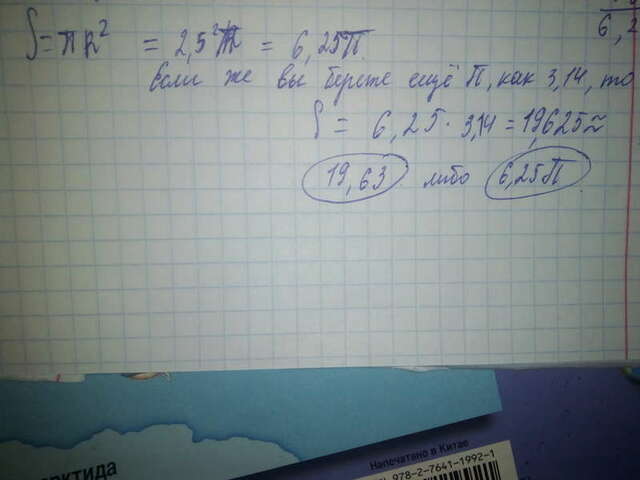 S = πR² = 2,5²π = 6,25π
Если же вы берете ещё π, как 3,14, то
S = 6,25 · 3,14 = 19,625 ≈
19,63 либо 6,25π
6,2
Напечатано в Китае
978-2-7641-1992-1